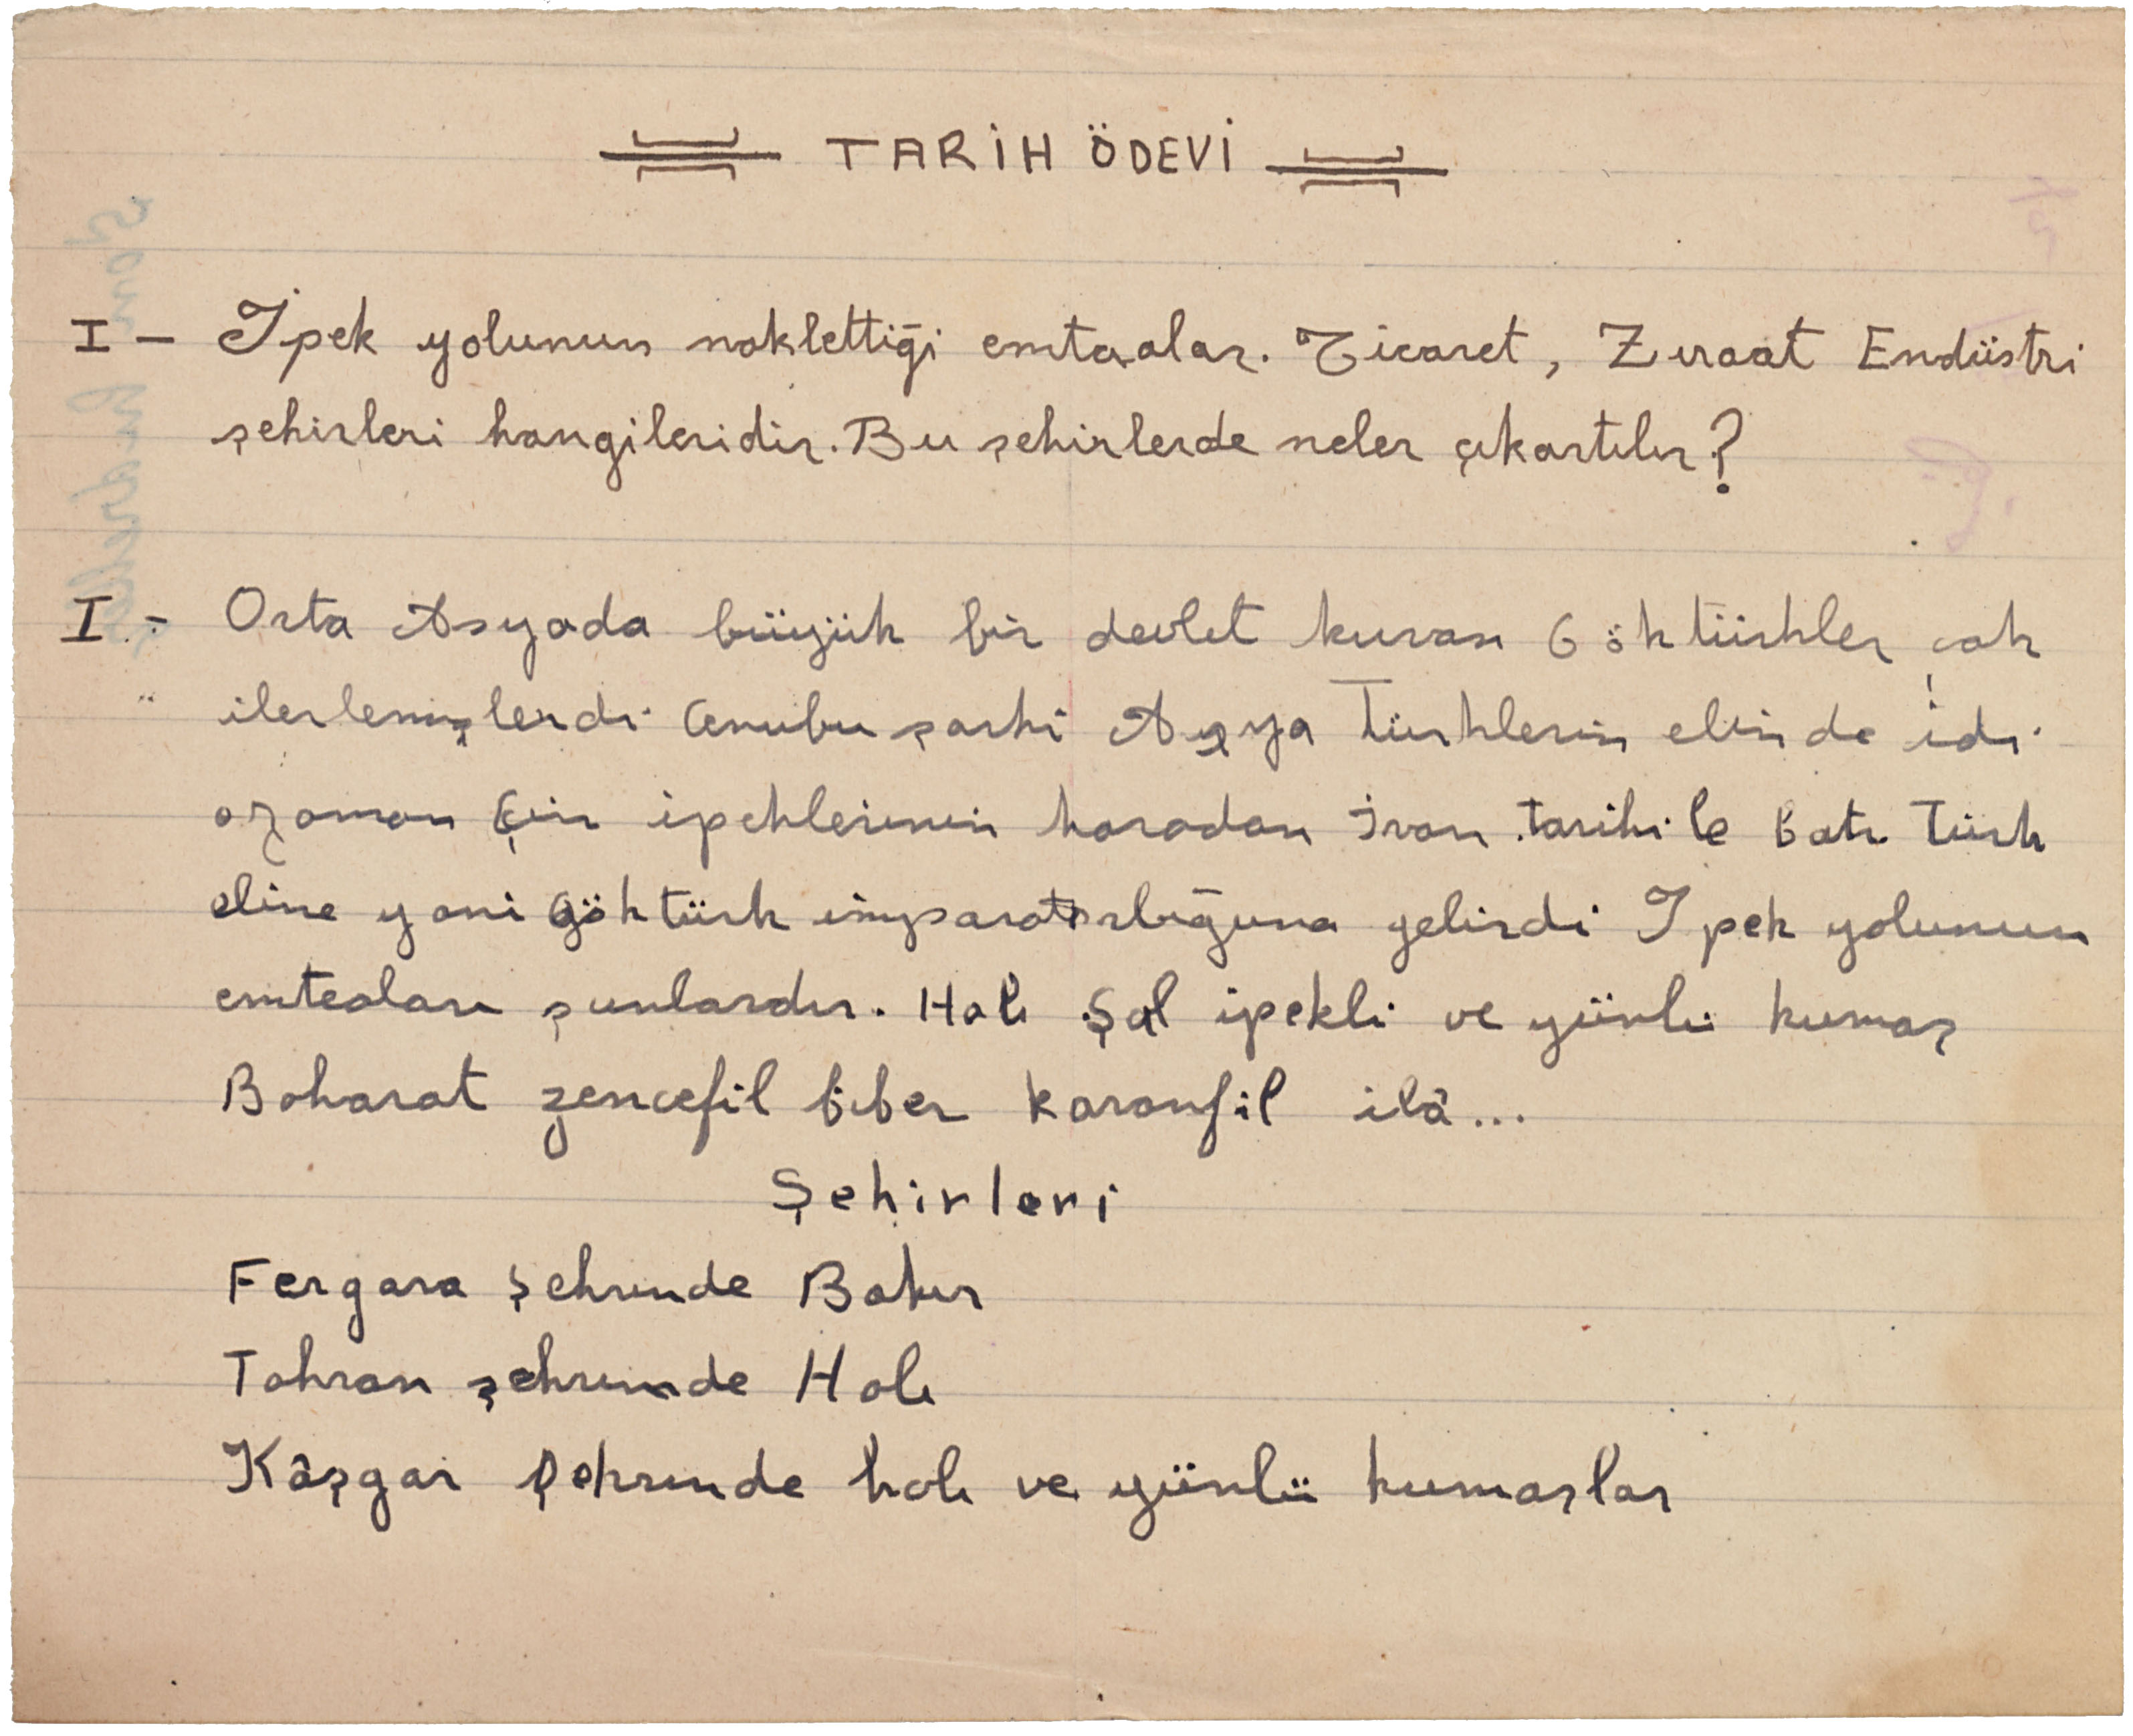 TARİH ÖDEVİ
I - İpek yolunun naklettiği emtaalar. Ticaret, Zıraat Endüstri
şehirleri hangileridir. Bu şehirlerde neler çıkartılır?
I - Orta Asyada büyük bir devlet kuran Göktürkler çok
ilerlemişlerdi Cenubu şarki Asya Türklerin elinde idi.
ozaman Çin ipeklerinin karadan İran tarihi le Batı Türk
eline yani Göktürk imparatorluğuna gelirdi İpek yolunun
emteaları şunlardır. Halı Şal ipekli ve yünlü kumaş
Baharat zencefil biber karanfil ilâ...
Şehirleri
Fergara şehrinde Bakır
Tahran şehrinde Halı
Kâşgar şehrinde halı ve yünlü kumaşlar